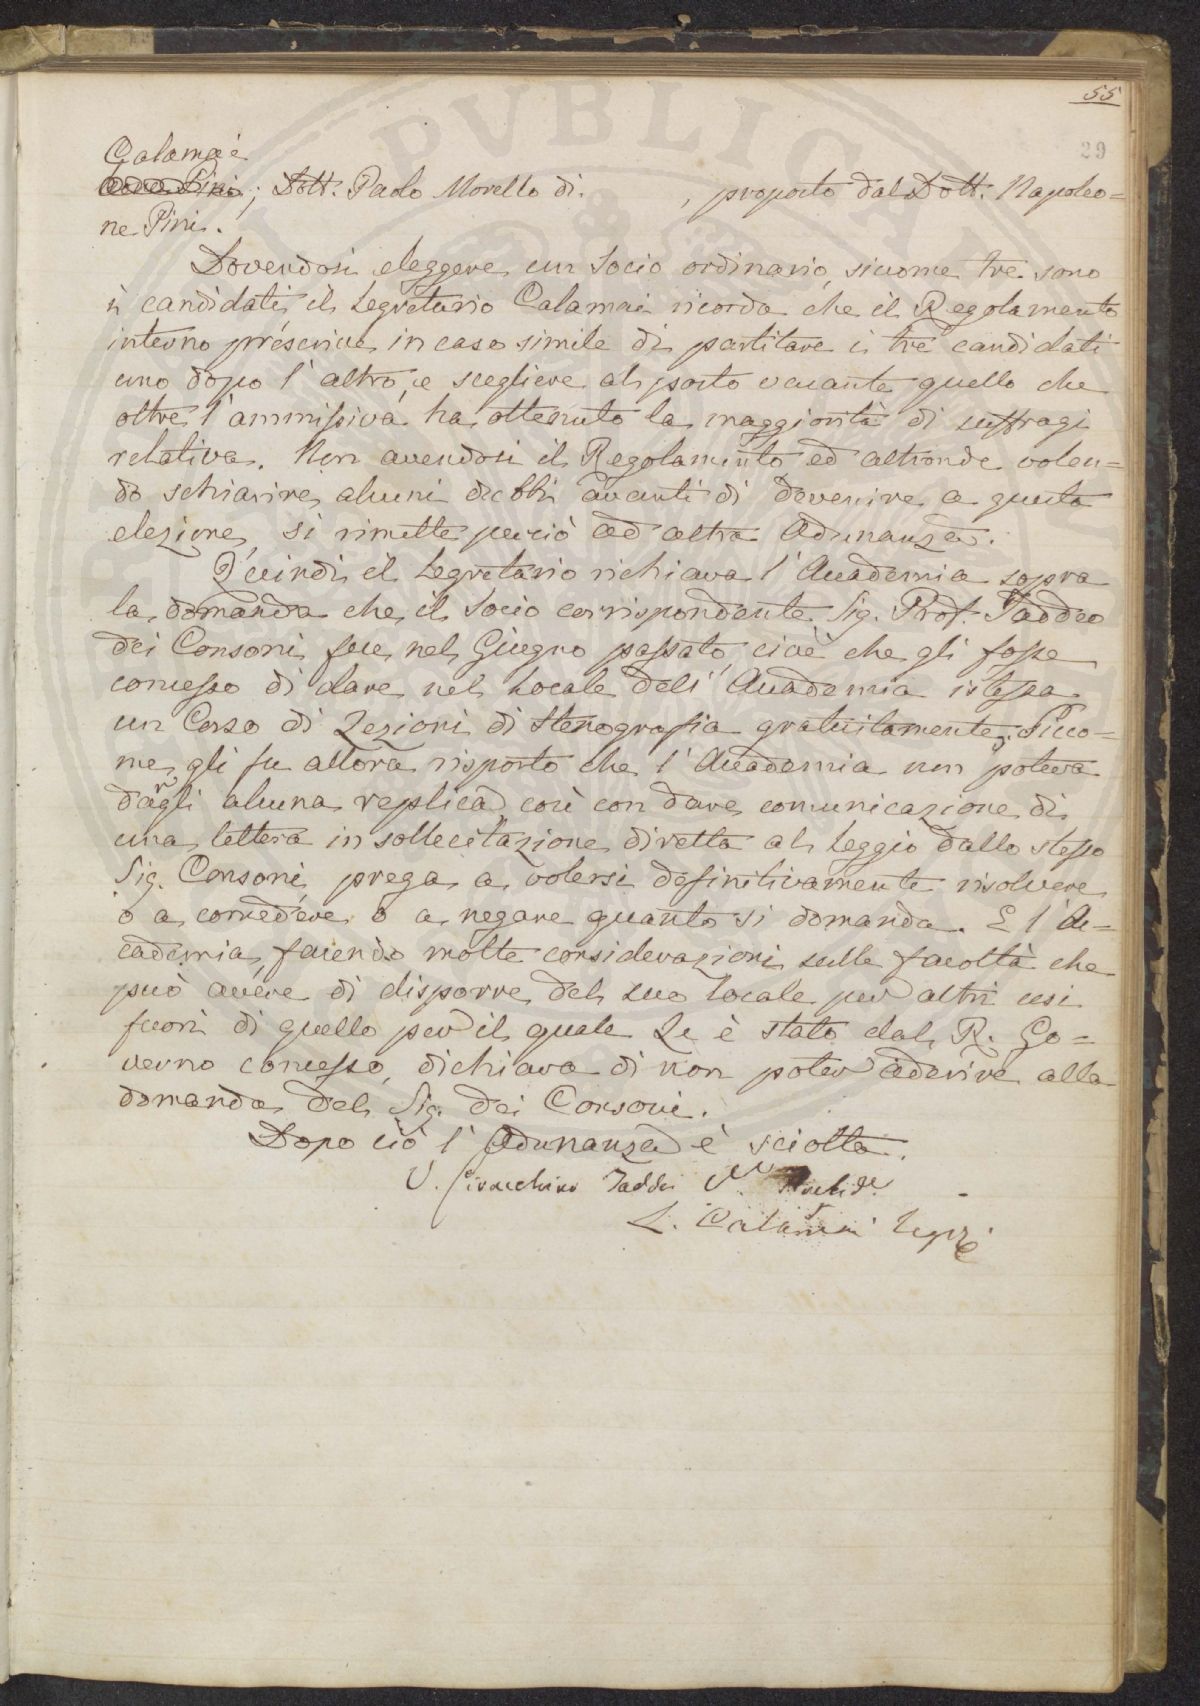 55
29
Calamai
; Dott. Paolo Morello di , proposto dal Dott. Napoleo=
ne Pini.
Dovendosi eleggere un Socio ordinario, siccome tre sono
i candidati, il Segretario Calamai ricorda che il Regolamento
interno prescrive in caso simile di partitare i tre candidati
uno dopo l'altro, e scegliere al posto vacante quello che
oltre l'ammissiva ha ottenuto la maggiorità di suffragi
relativa. Non avendosi il Regolamento, ed altronde volen=
do schiarire alcuni dubbi avanti di devenire a questa
elezione, si rimette perciò ad altra Adunanza.
Quindi il Segretario richiava l'Accademia sopra
la domanda che il Socio corrispondente Sig. Prof. Taddeo
dei Consoni fece nel Giugno passato, cioè che gli fosse
concesso di dare nel Locale dell'Accademia istessa
un Corso di Lezioni di Stenografia gratuitamente. Sicco=
me gli fu allora risposto che l'Accademia non poteva
dargli alcuna replica, così con dare comunicazione di
una lettera in sollecitazione diretta al Seggio dallo stesso
Sig. Consoni, prega a volersi definitivamente risolvere
o a concedere o a negare quanto si domanda. E l'Ac=
cademia, facendo molte considerazioni sulle facoltà che
può avere di disporre del suo locale per altri usi
fuori di quello per il quale Le è stato dal R. Go=
verno concesso, dichiara di non poter aderire alla
domanda del Sig. dei Consoni.
Dopo ciò l'Adunanza è sciolta.
V. Gioacchino Taddei V.
L. Calamai Segr.